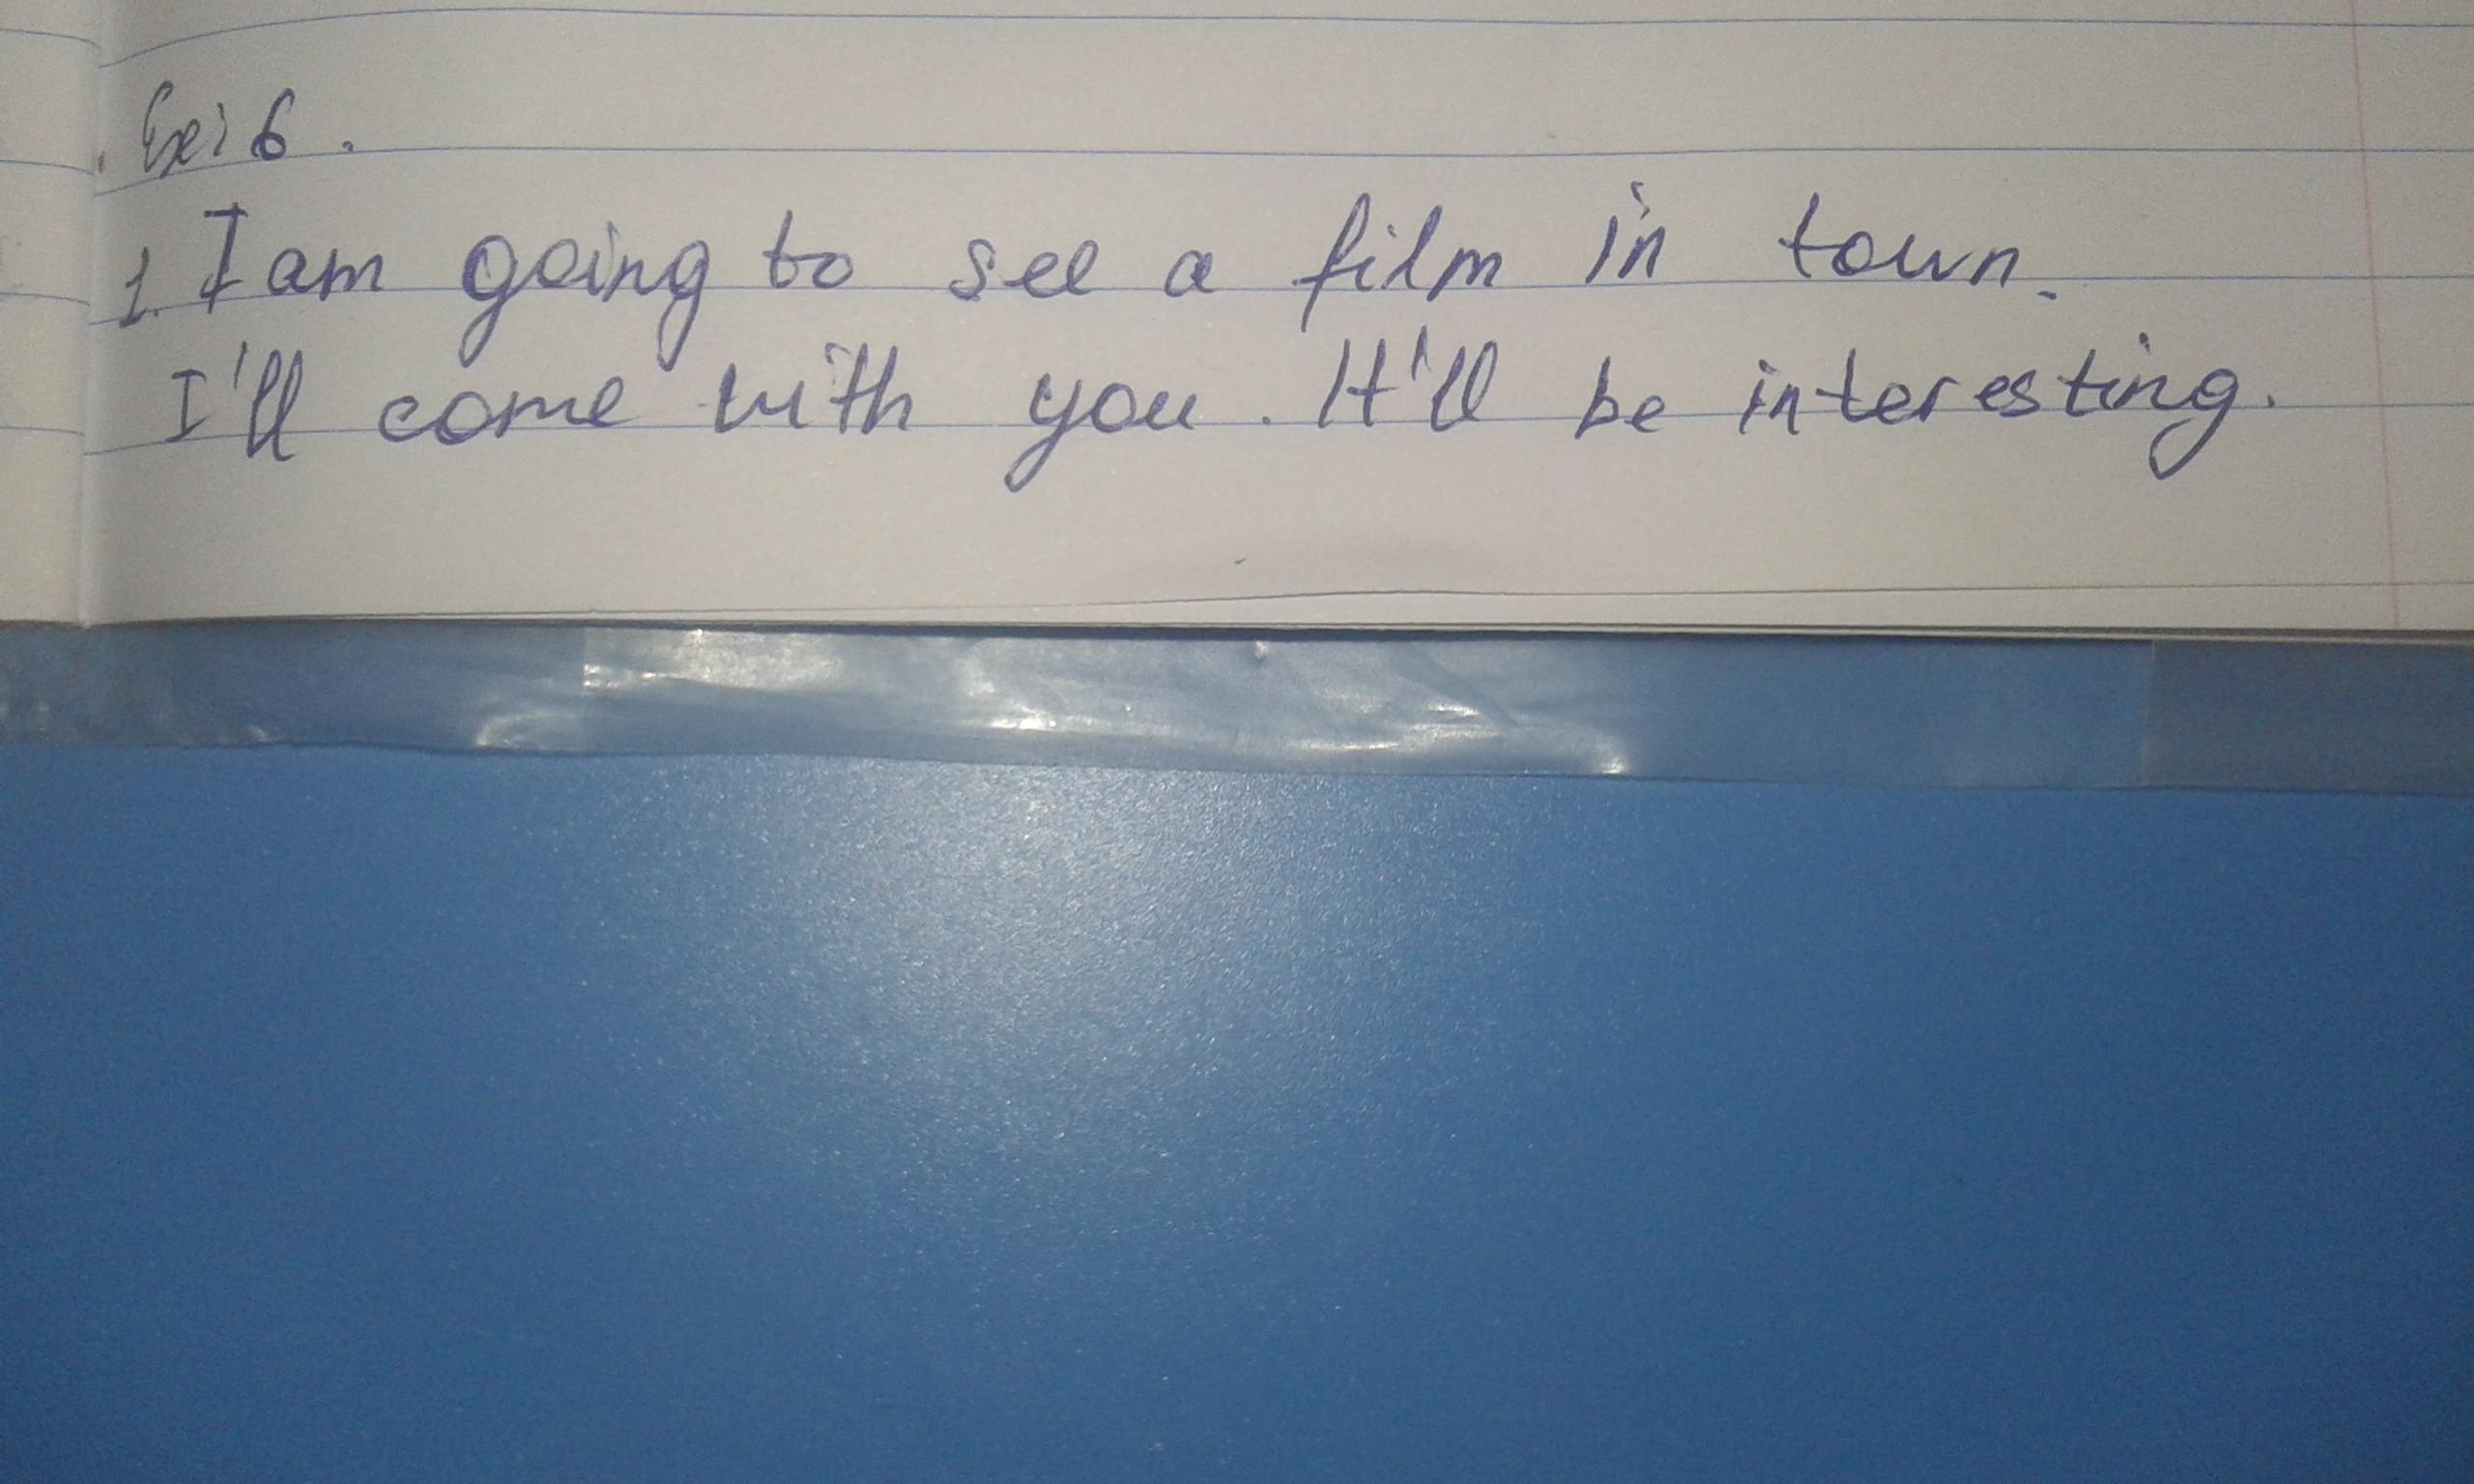 Ex: 6.
1. I am going to see a film in town.
I'll come with you. It'll be interesting.